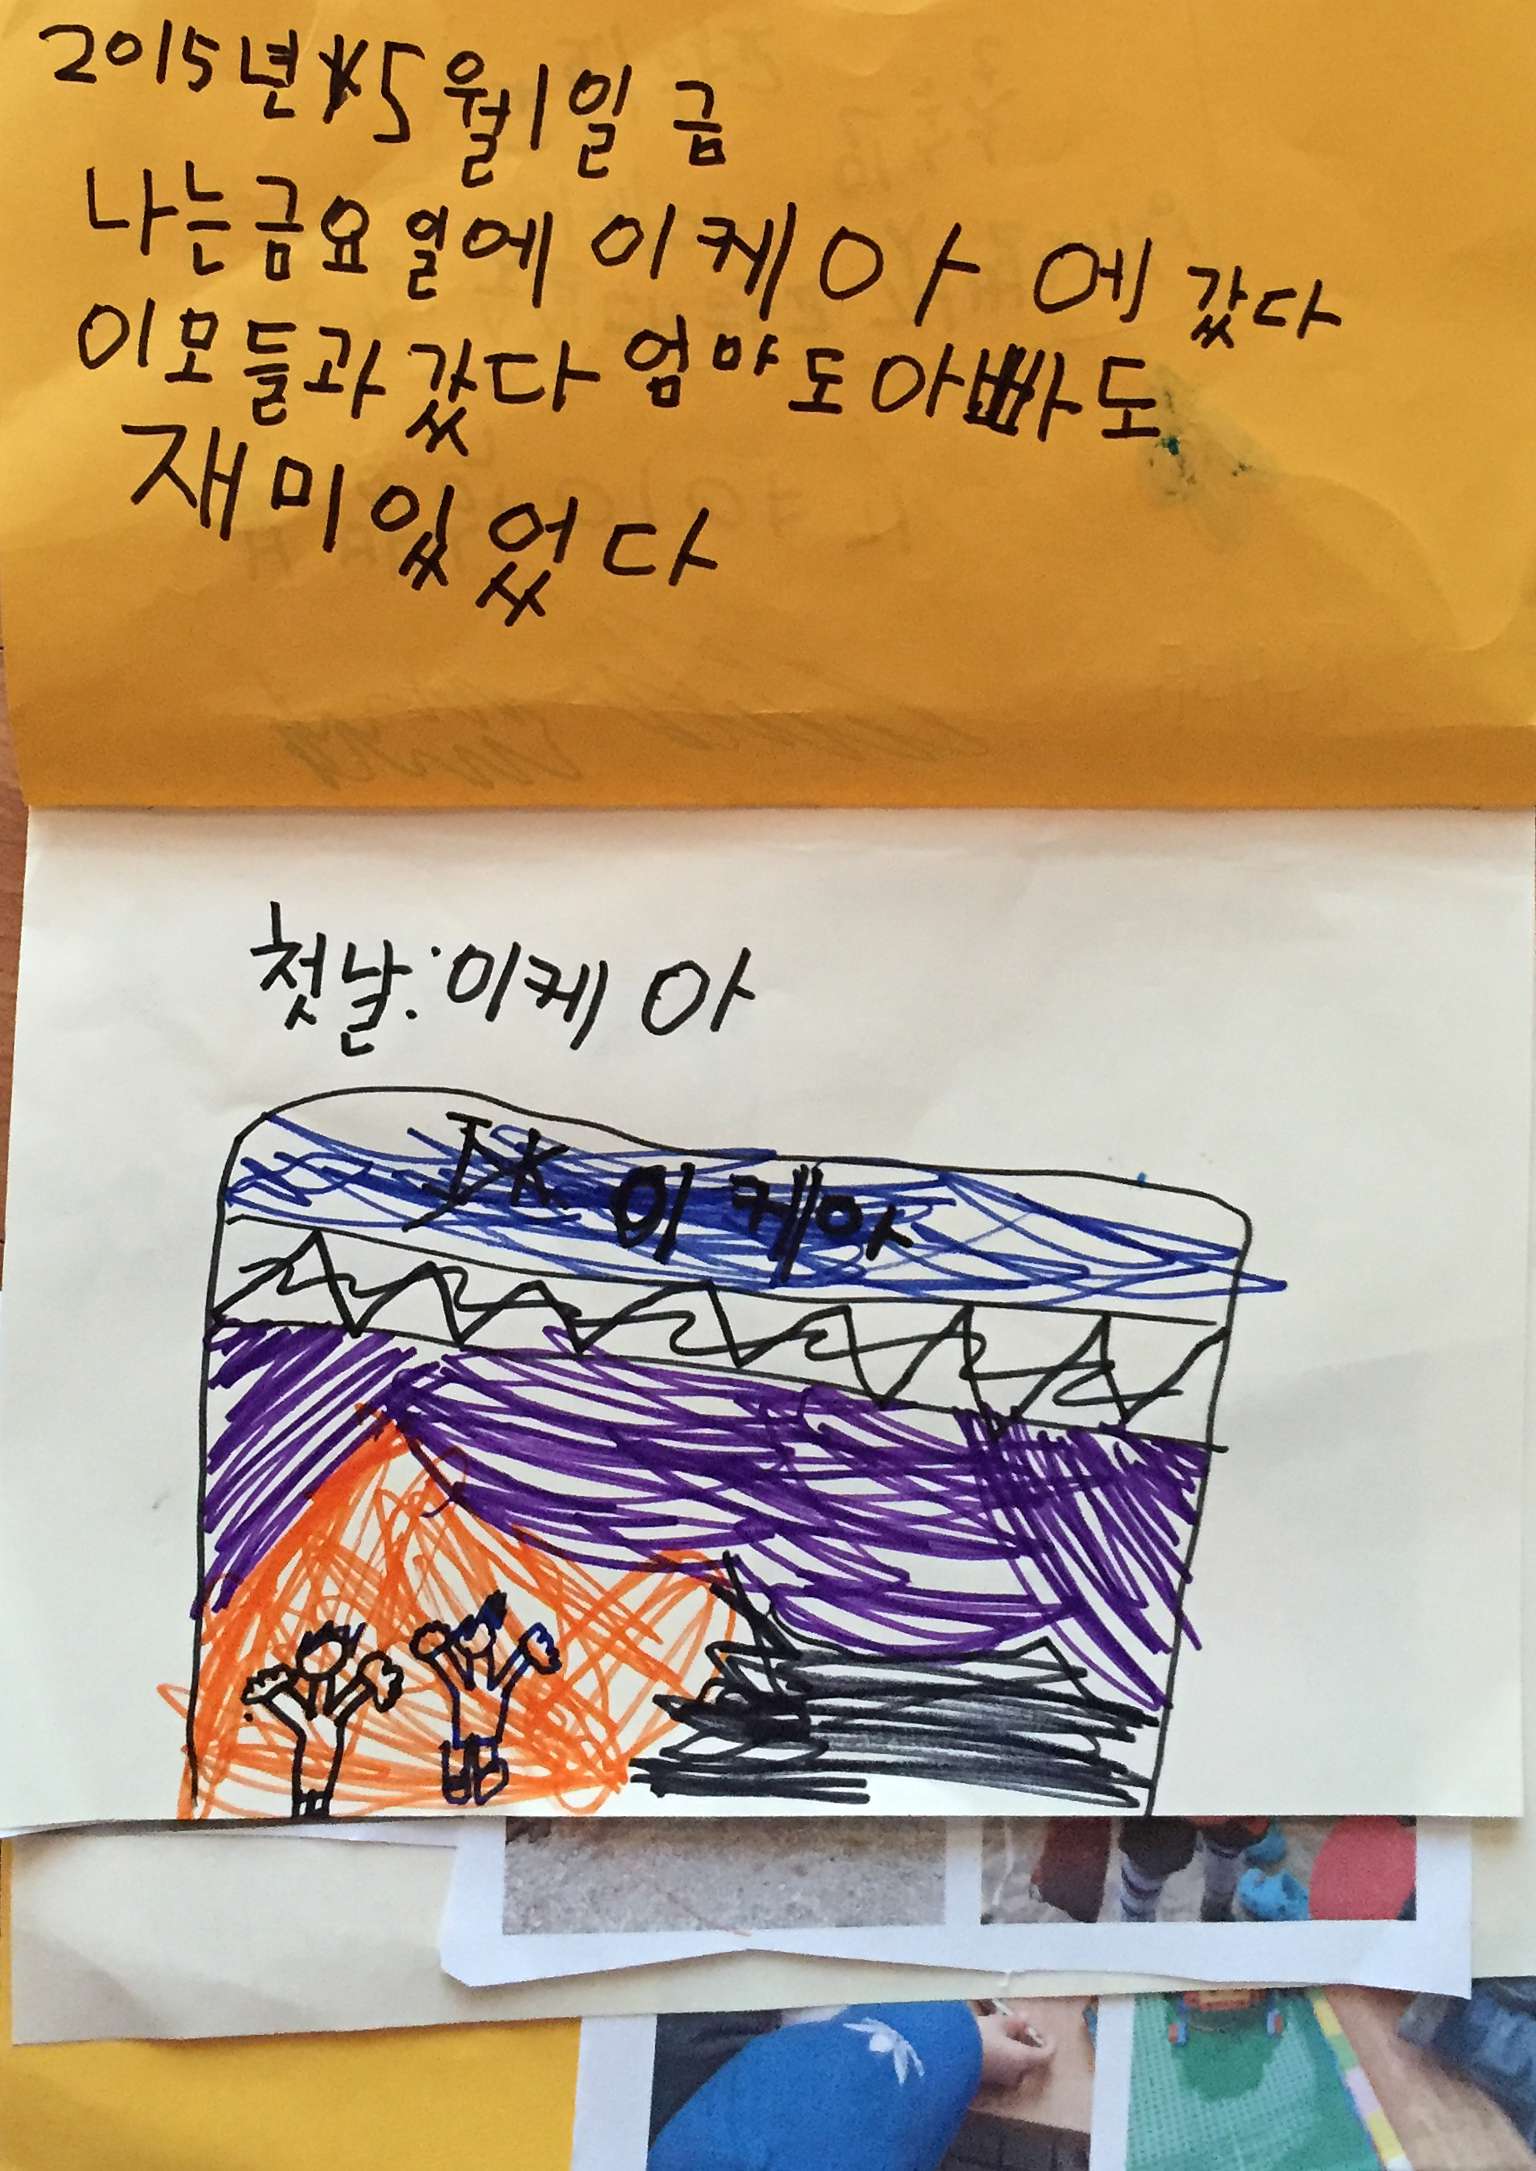 2015년 5월 1일 금
나는 금요일에 이케아에 갔다
이모들과 갔다 엄마도 아빠도
재미있었다
첫날: 이케아
이케아